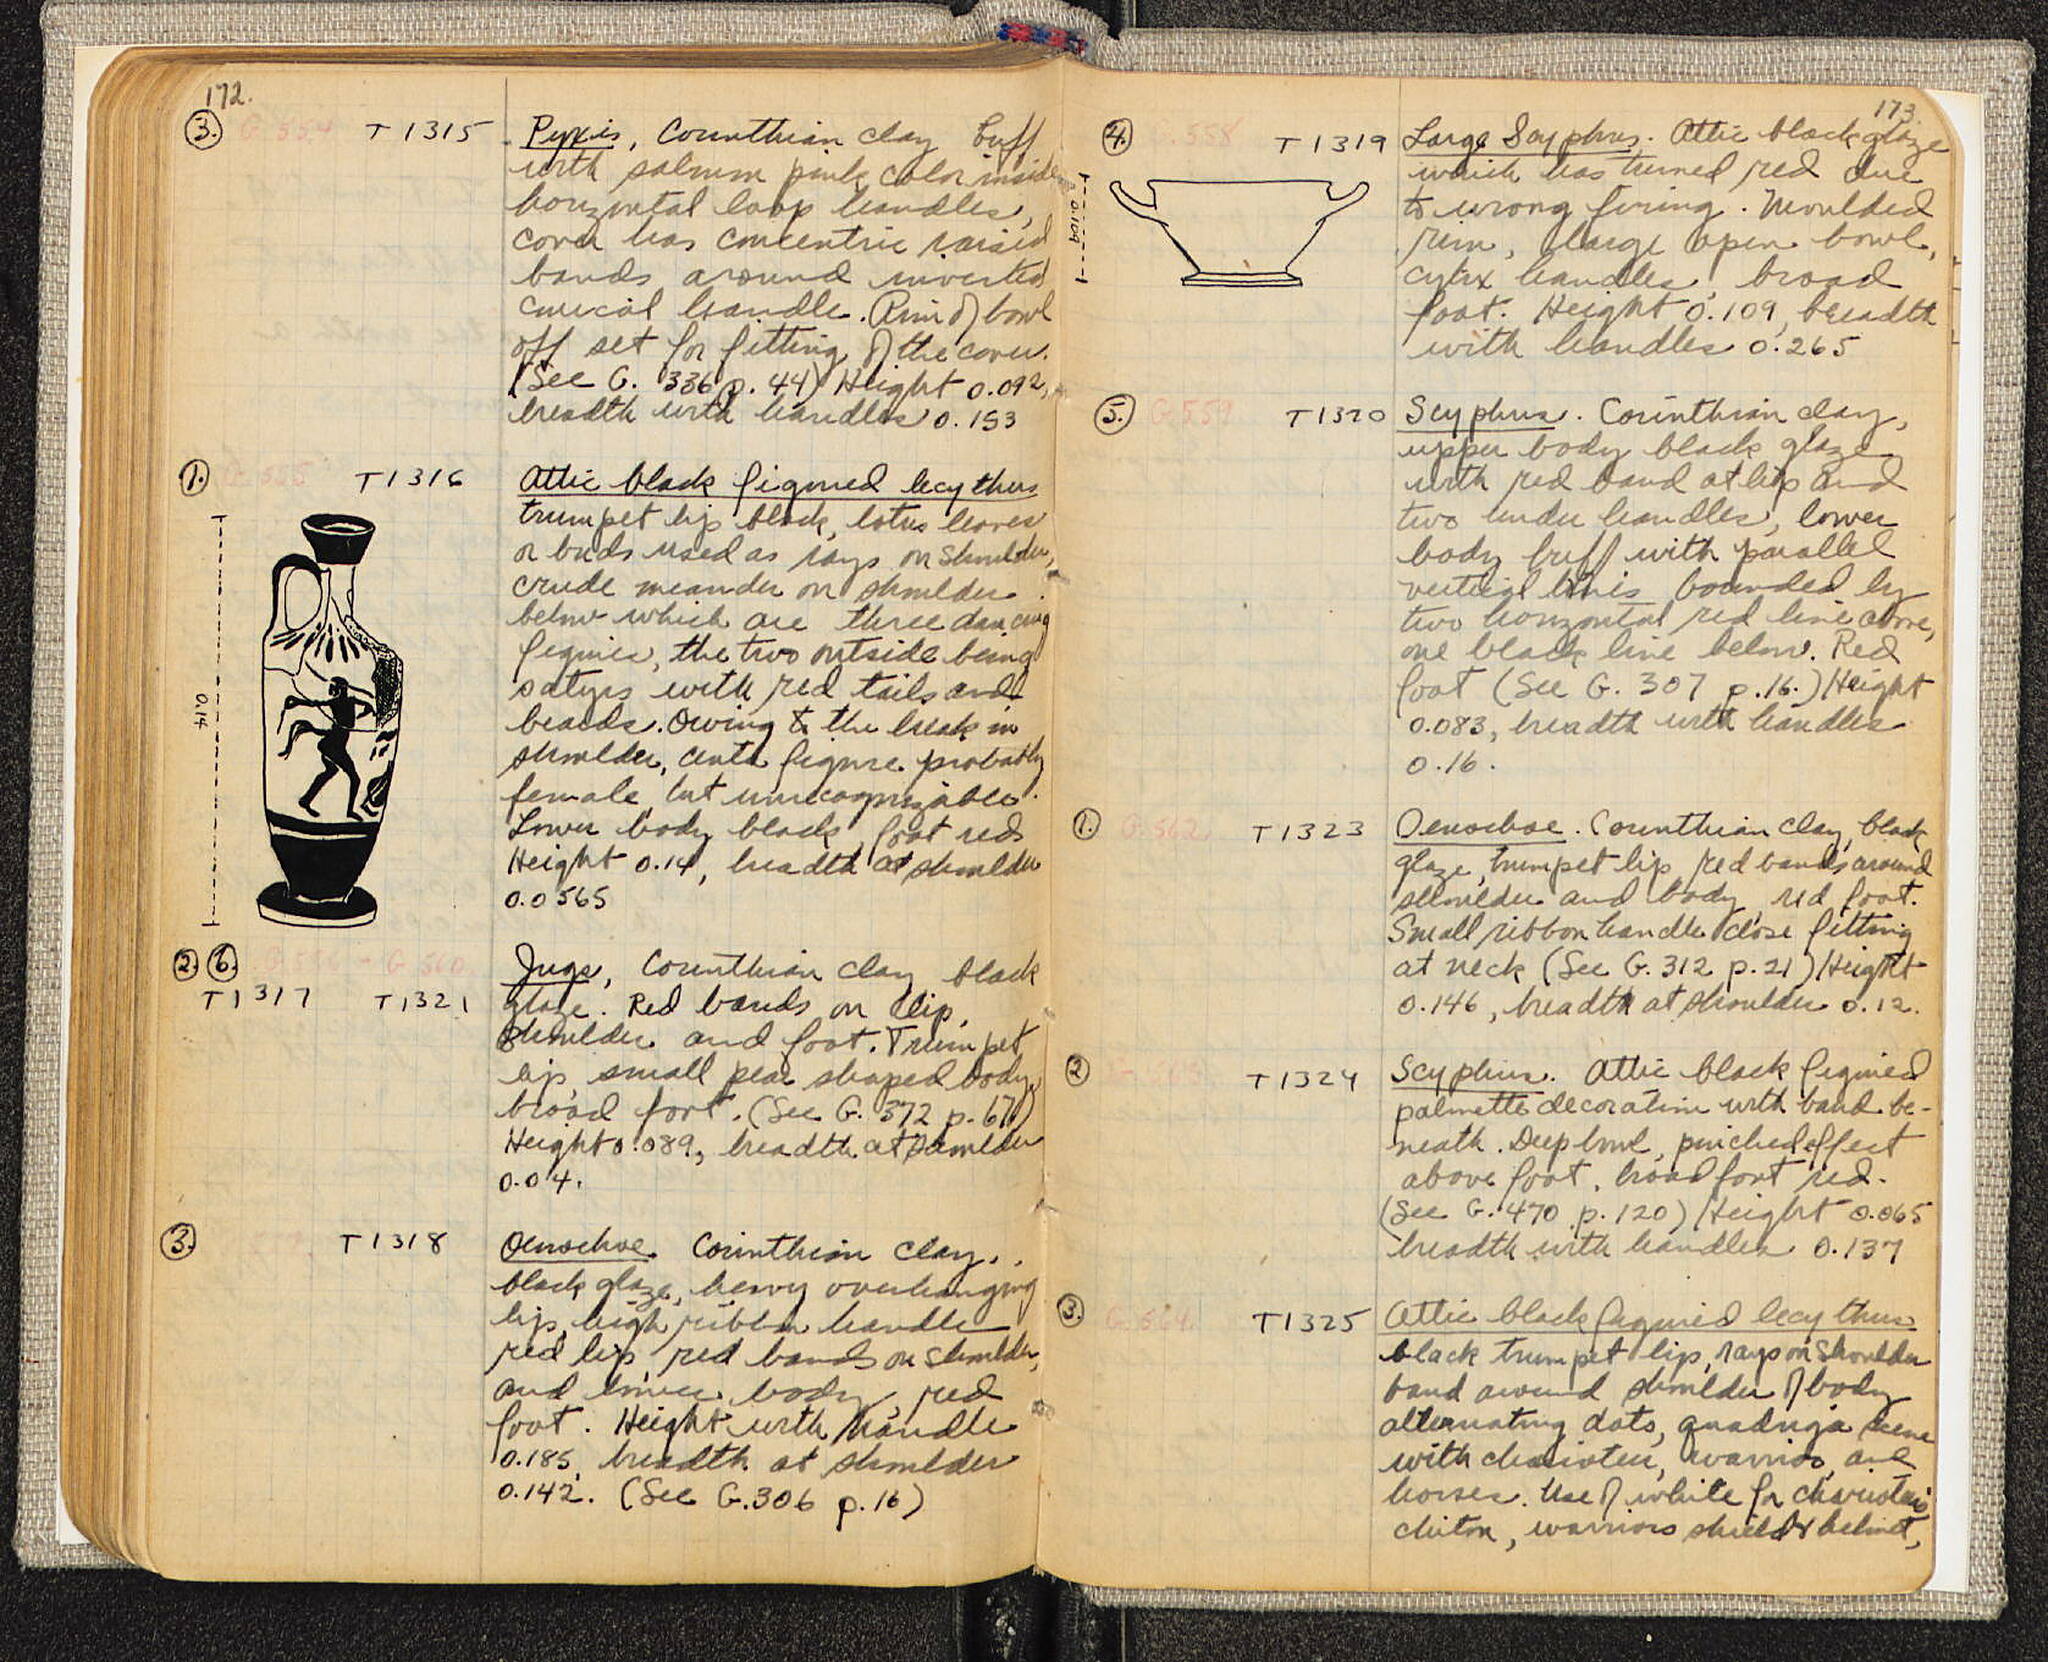 172.
3. G. 554 T 1315 Pyxis, Corinthian clay buff
with salmon pink color inside
horizontal loop handles,
cover has concentric raised
bands around inverted
conical handle. Rim of bowl
off set for fitting of the cover.
(See G. 336 p. 44) Height 0.092,
breadth with handles 0.153
1. G. 555 T 1316 Attic black figured lecythus
trumpet lip black, lotus leaves
or buds used as rays on shoulder,
crude meander on shoulder
below which are three dancing
figures, the two outside being
satyrs with red tails and
beards. Owing to the break in
shoulder, center figure probably
female but unrecognizable.
Lower body black, foot red
Height 0.14, breadth at shoulder
0.0565
0.14
2. 6. G. 556 - G. 560 Jugs, Corinthian clay black
T 1317 T 1321 glaze. Red bands on lip,
shoulder and foot. Trumpet
lip, small pear shaped body,
broad foot. (See G. 372 p. 67)
Height 0.089, breadth at shoulder
0.04.
3. T 1318 Oenochoe Corinthian clay,
black glaze, heavy overhanging
lip, high ribbon handle
red lip, red bands on shoulder,
and lower body, red
foot. Height with handle
0.185, breadth at shoulder
0.142. (See G. 306 p. 16)
173.
4. 558 T 1319 Large Scyphus. Attic black glaze
which has turned red due
to wrong firing. Moulded
rim, large open bowl,
cylix handles, broad
foot. Height 0.109, breadth
with handles 0.265
0.109
5. G. 559 T 1320 Scyphus. Corinthian clay,
upper body black glaze
with red band at lip and
two under handles, lower
body buff with parallel
vertical lines bounded by
two horizontal red line above,
one black line below. Red
foot (See G. 307 p. 16.) Height
0.083, breadth with handles
0.16.
1. G. 562. T 1323 Oenochoe. Corinthian clay, black
glaze, trumpet lip, red bands around
shoulder and body, red foot.
Small ribbon handle close fitting
at neck (See G. 312 p. 21) Height
0.146, breadth at shoulder 0.12.
2 T 1324 Scyphus. Attic black figured
palmette decoration with band be-
neath. Deep bowl, pinched effect
above foot, broad foot red.
(See G. 470 p. 120) Height 0.065
breadth with handles 0.137
3. G. 564. T 1325 Attic black figured lecythus
black trumpet lip, rays on shoulder
band around shoulder of body
alternating dots, quadriga scene
with charioteer, warrior, and
horses. Use of white for charioteers
chiton, warriors shield & helmet,